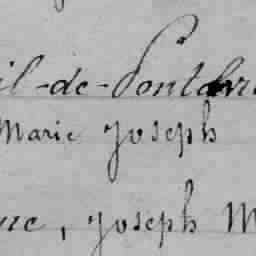 il-de-Pontchr
Marie Joseph
ne, Joseph M